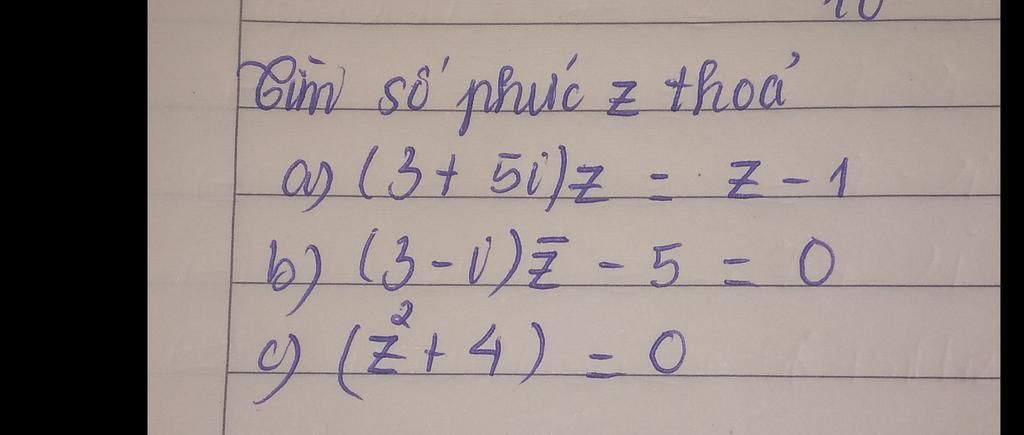 Tìm số phức z thoả
a) (3 + 5i)z = z - 1
b) (3 - i)z̄ - 5 = 0
c) (z² + 4) = 0